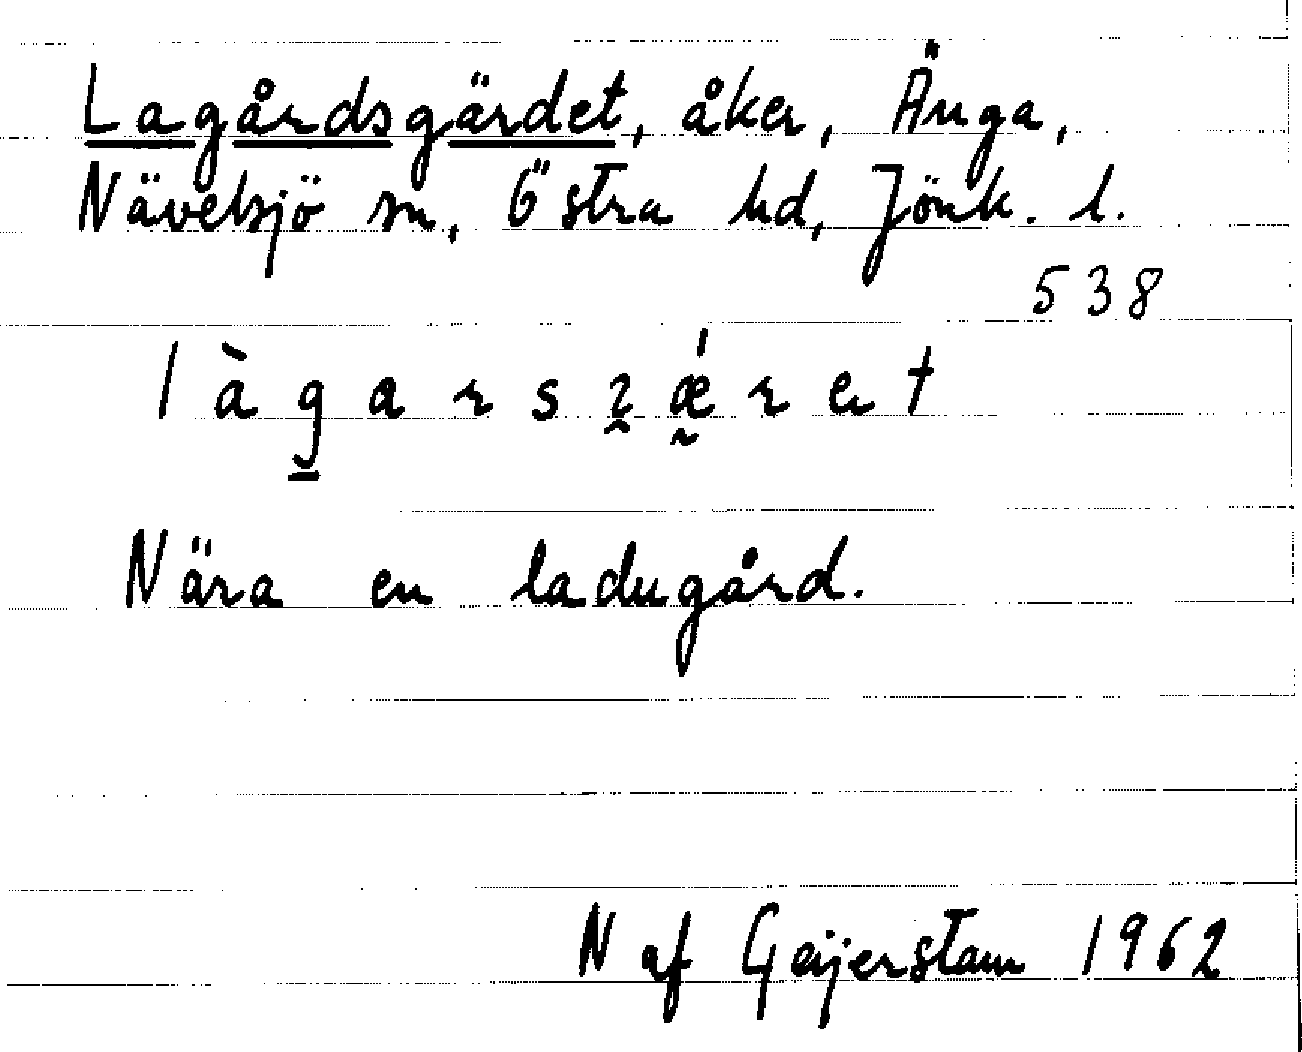 Lagårdsgärdet, åker, Änga,
Nävelsjö sn, Östra hd, Jönk. l.
538
l à g a r s ʒ ǽ r e t
Nära en ladugård.
N af Geijerstam 1962